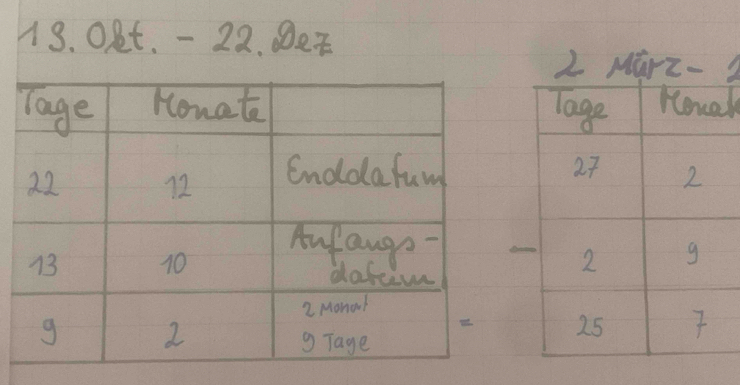 13. Okt. - 22. Dez
2 März -
Tage Monate
Tage Monat
22 12 Enddatum
27 2
13 10 Anfangs-
datum
- 2 9
9 2 2 Monat
9 Tage
= 25 7